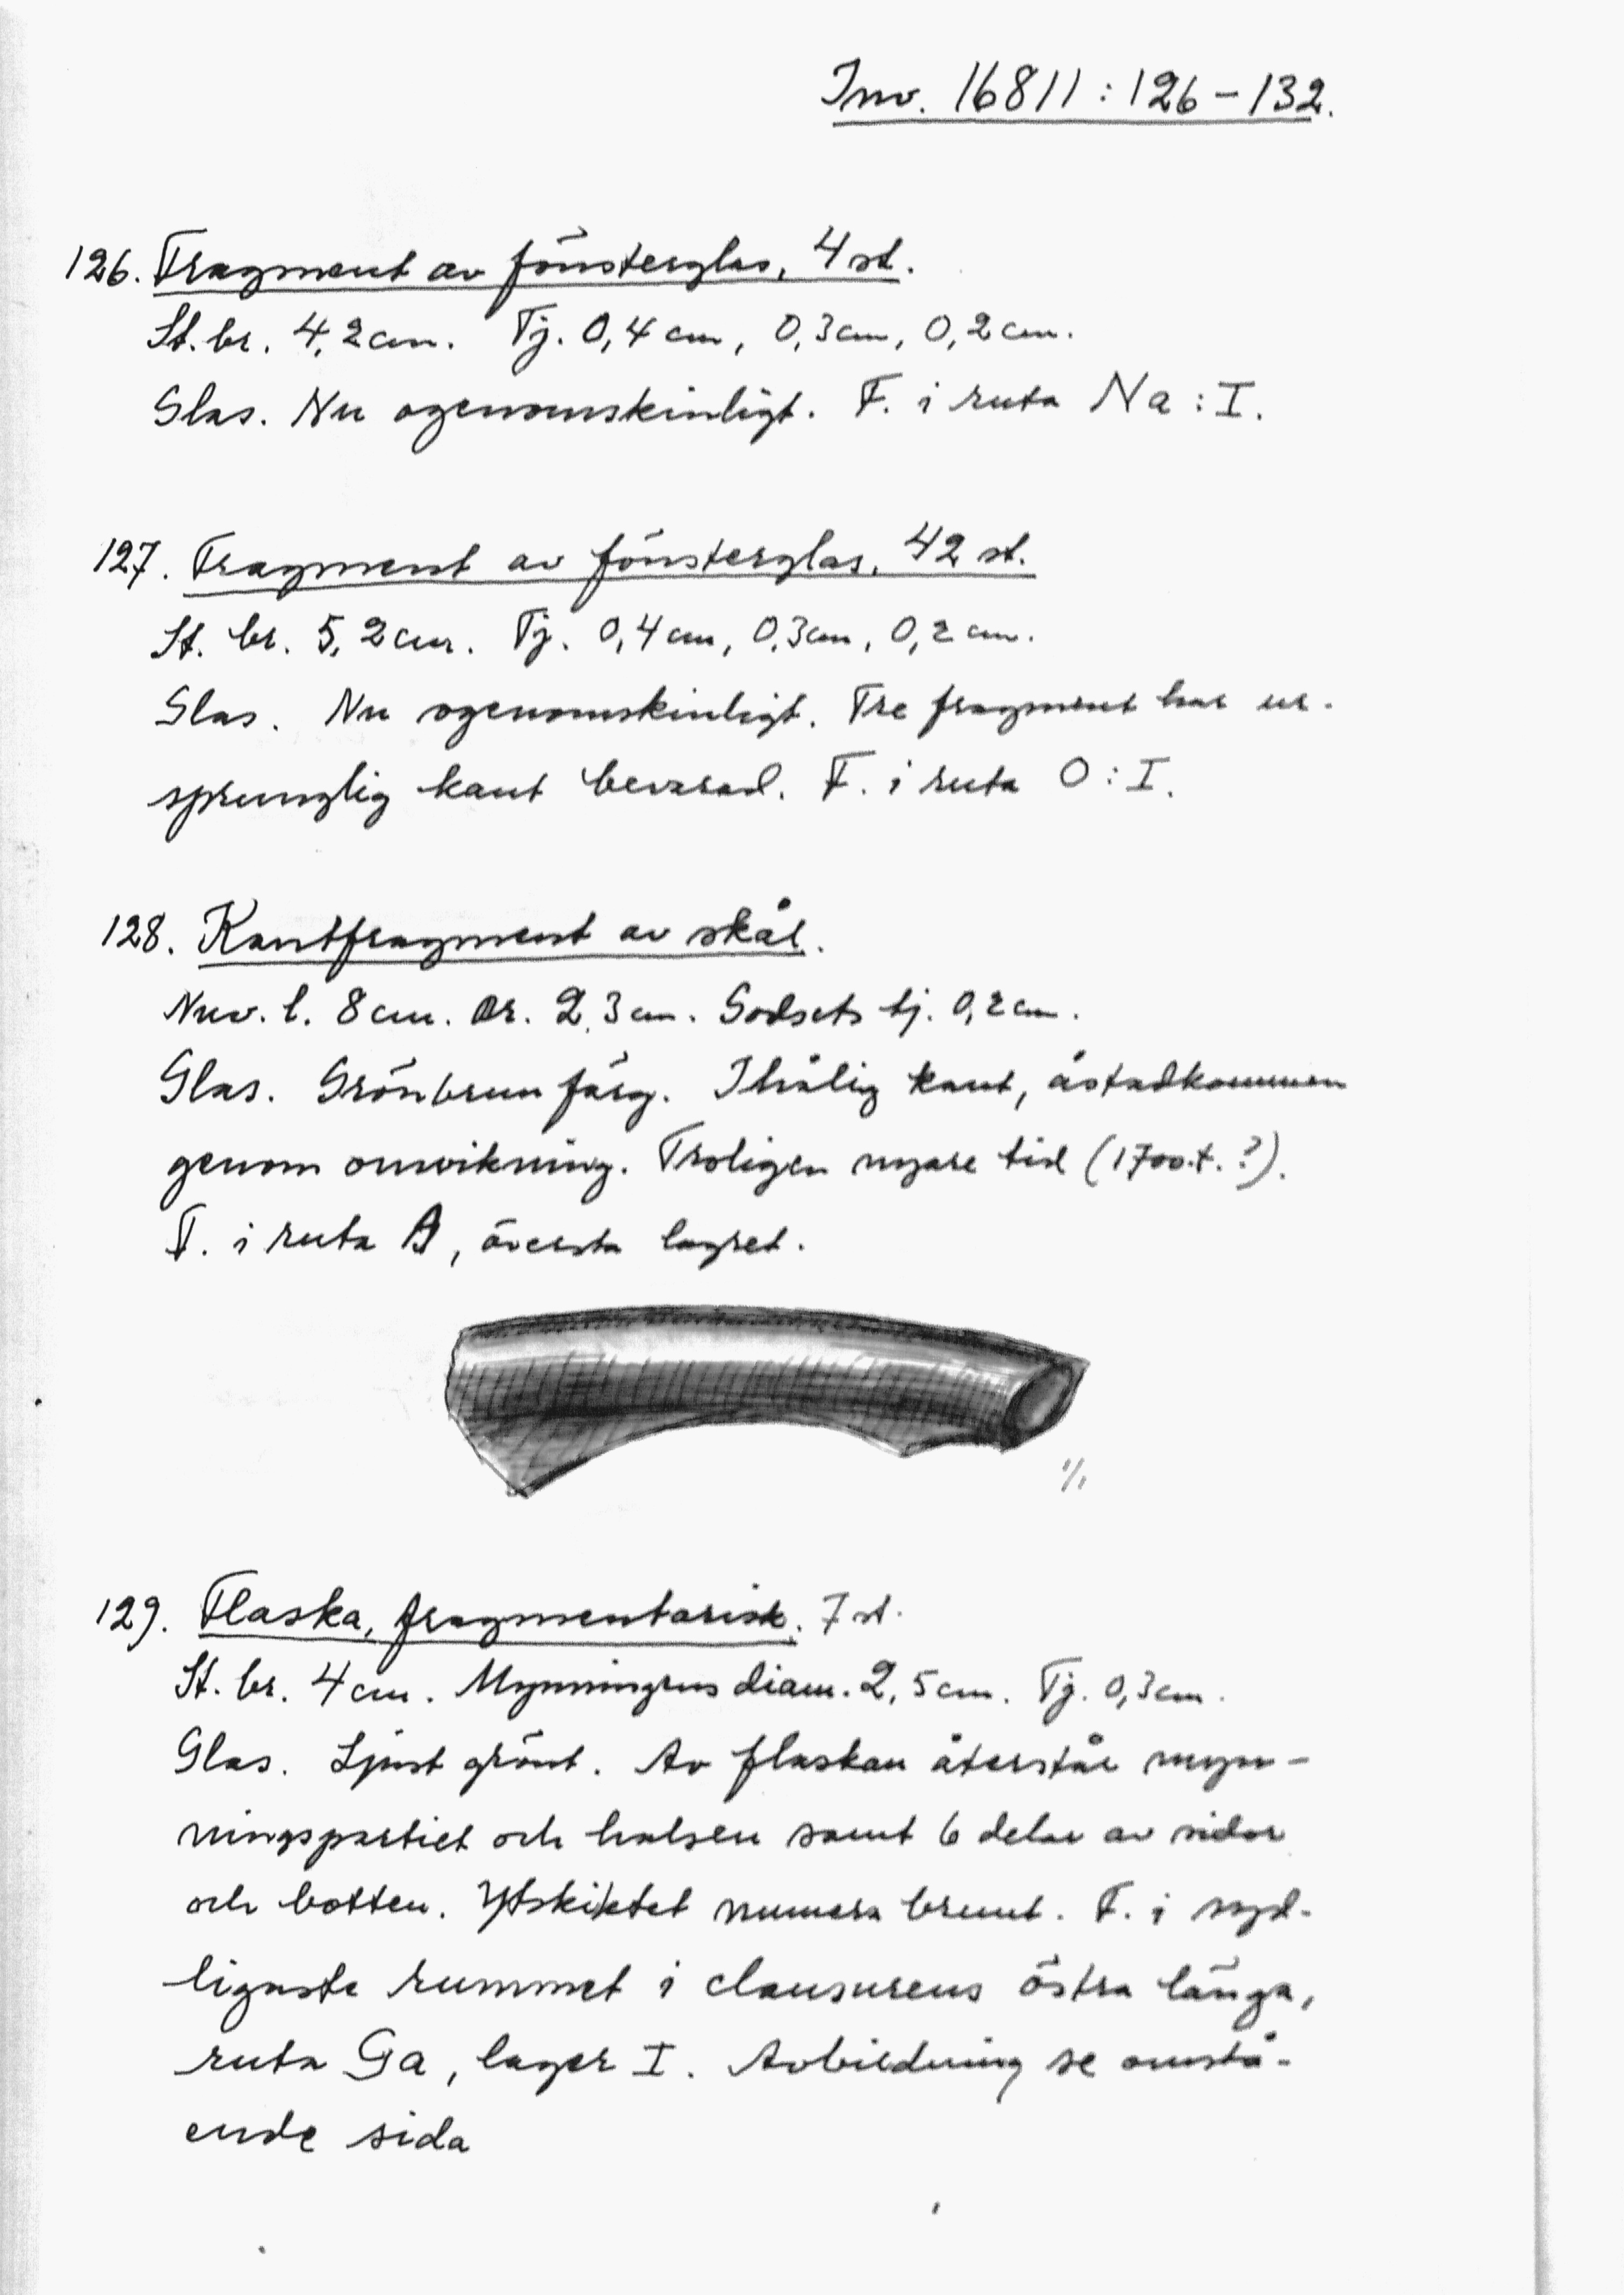 Inv. 16811:126-132.
126. Fragment av fönsterglas, 4 st.
St. br. 4,2 cm. Tj. 0,4 cm, 0,3 cm, 0,2 cm.
Glas. Nu ogenomskinligt. F. i ruta Na:I.
127. Fragment av fönsterglas, 42 st.
St. br. 5,2 cm. Tj. 0,4 cm, 0,3 cm, 0,2 cm.
Glas. Nu ogenomskinligt. Tre fragment har ur-
sprunglig kant bevarad. F. i ruta O:I.
128. Kantfragment av skål.
Nuv. l. 8 cm. Br. 2,3 cm. Godsets tj. 0,2 cm.
Glas. Grönbrun färg. Ihålig kant, åstadkommen
genom omvikning. Troligen nyare tid (1700-t.?).
F. i ruta A, översta lagret.
1/1
129. Flaska, fragmentarisk. 7 st.
St. br. 4 cm. Mynningens diam. 2,5 cm. Tj. 0,3 cm.
Glas. Ljust grönt. Av flaskan återstår myn-
ningspartiet och halsen samt 6 delar av sidor
och botten. Ytskiktet numera brunt. F. i syd-
ligaste rummet i clausurens östra länga,
ruta Ga, lager I. Avbildning se omstå-
ende sida